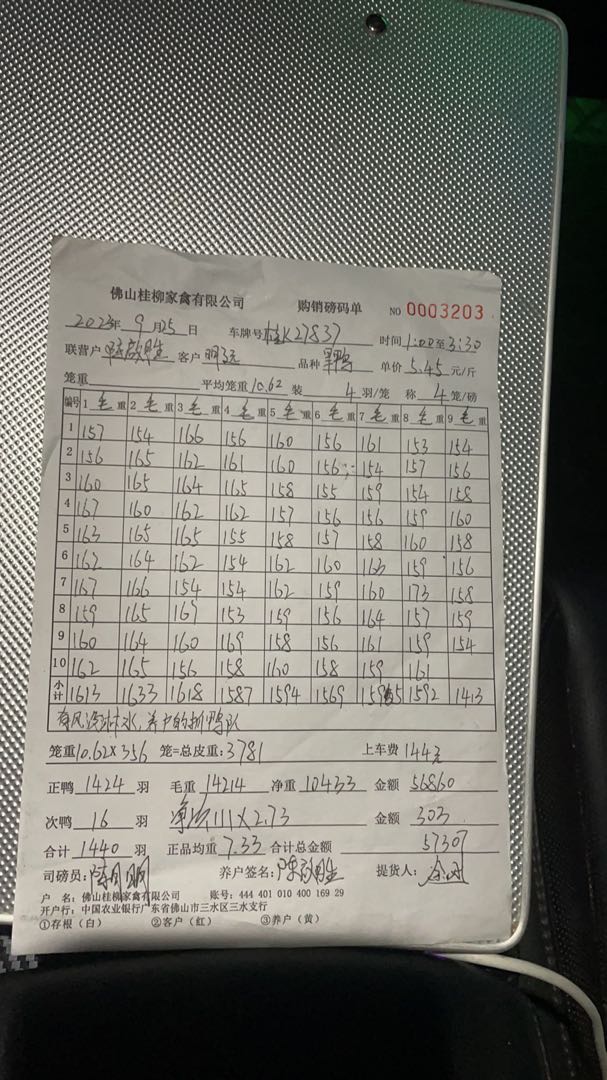 佛山桂柳家禽有限公司 购销磅码单 NO 0003203
2023年 9月25日 车牌号 桂K27837 时间 1:00至3:30
联营户 客户 明远 品种 单价 5.45 元/斤
笼重 平均笼重 10.62 装 4 羽/笼 称 4 笼/磅
编号 1 毛重 2 毛重 3 毛重 4 毛重 5 毛重 6 毛重 7 毛重 8 毛重 9 毛重
1 157 154 166 156 160 156 161 153 154
2 156 165 162 161 160 156 154 157 156
3 160 165 164 165 158 155 159 154 158
4 167 160 162 162 157 156 156 159 160
5 163 165 165 155 158 157 158 160 158
6 162 164 162 154 162 160 163 159 156
7 167 166 154 154 162 159 160 173 158
8 159 165 167 153 159 156 164 157 159
9 160 164 160 169 158 156 161 159 154
10 162 165 156 158 160 158 159 161
小计 1613 1633 1618 1587 1594 1569 1595 1592 1413
有风没淋水,养户的抓鸭队
笼重 10.62×356 笼=总皮重: 3781 上车费 144元
正鸭 1424 羽 毛重 14214 净重 10433 金额 56860
次鸭 16 羽 净重111×2.73 金额 303
合计 1440 羽 正品均重 7.33 合计总金额 57307
司磅员: 养户签名: 提货人:
户 名: 佛山桂柳家禽有限公司 账号: 444 401 010 400 169 29
开户行: 中国农业银行广东省佛山市三水区三水支行
①存根(白) ②客户(红) ③养户(黄)